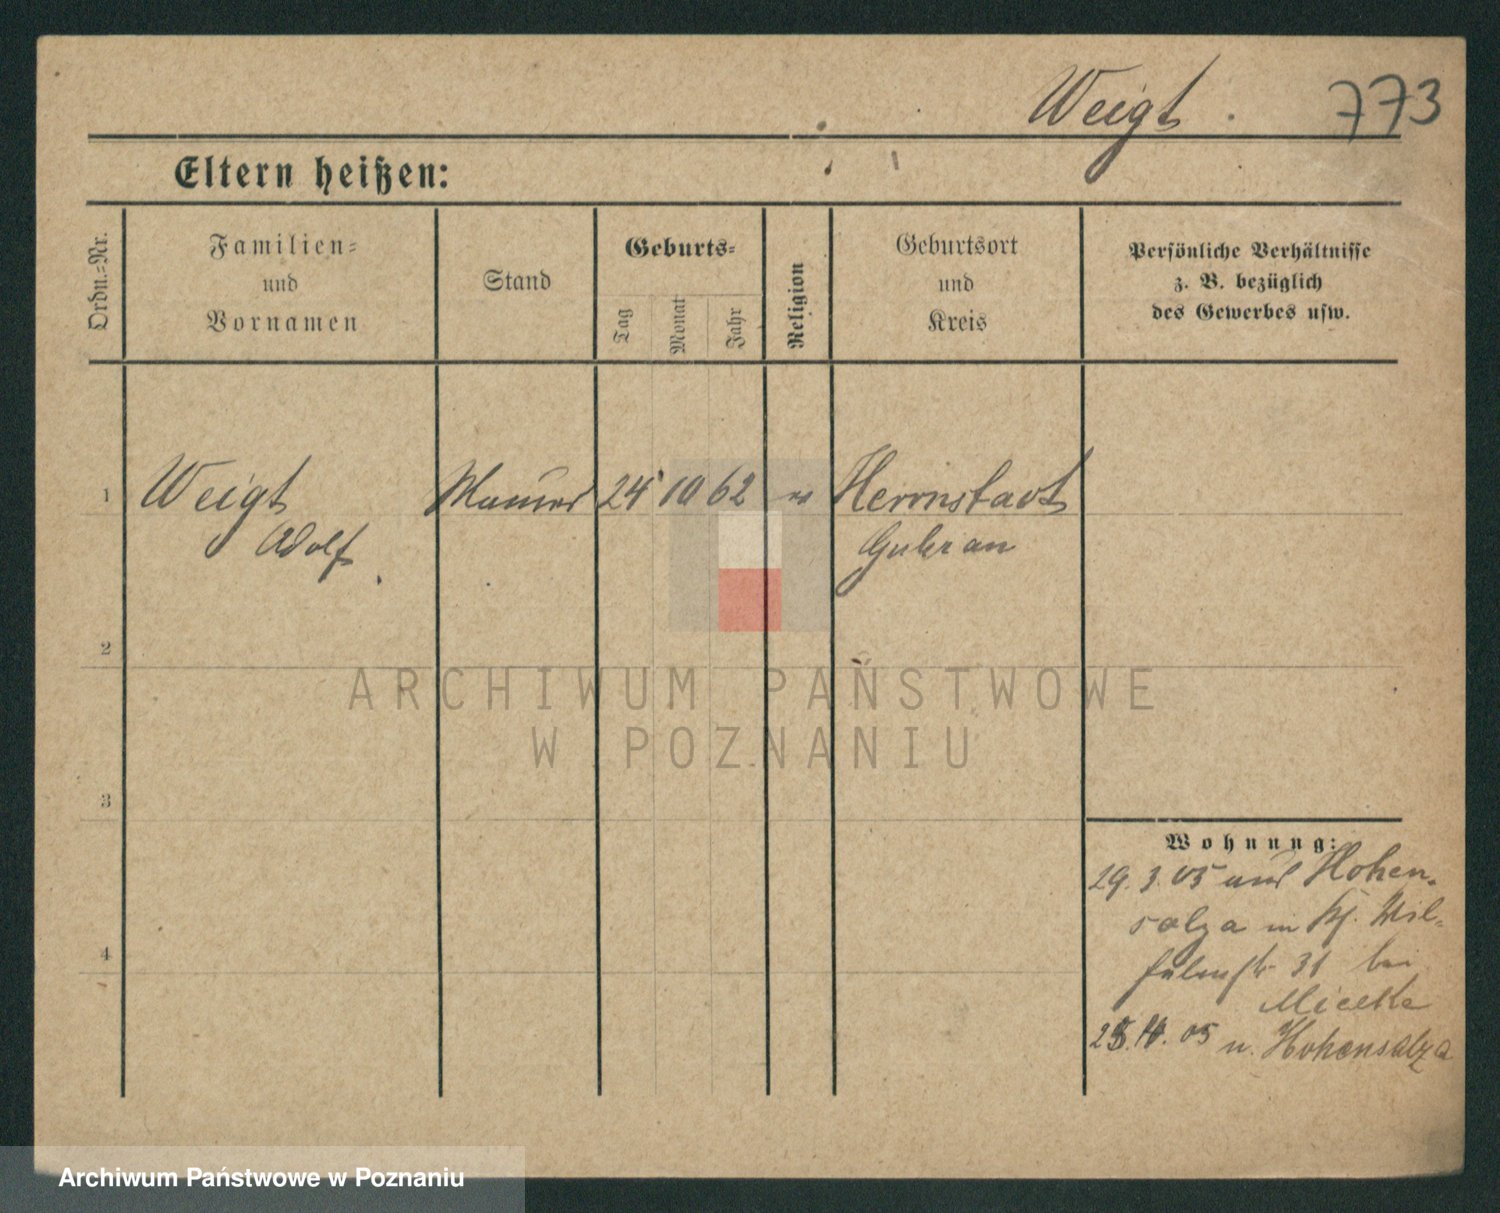 Weigt.
773
Eltern heißen:
Ordn.=Nr.
Familien=
und
Vornamen
Stand
Geburts=
Tag
Monat
Jahr
Religion
Geburtsort
und
Kreis
Persönliche Verhältnisse
z. B. bezüglich
des Gewerbes usw.
1
Weigt
Adolf
Maurer
24 10 62
Herrnstadt
Guhrau
2
3
4
ARCHIWUM PAŃSTWOWE
W POZNANIU
Wohnung:
29. 3. 05 aus Hohen-
salza in Wil-
31 bei
Mielke
05 n. Hohensalza
Archiwum Państwowe w Poznaniu